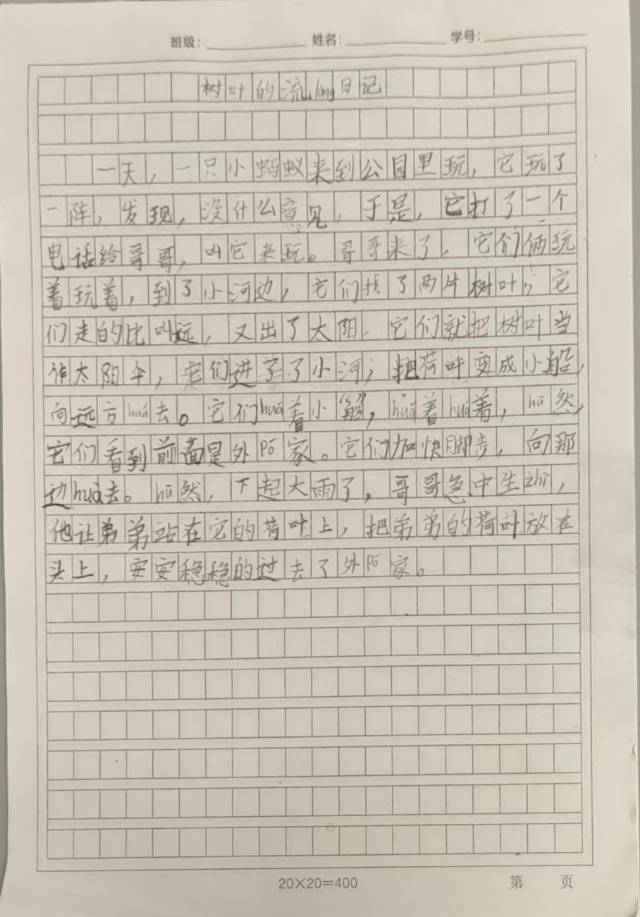 班级： 姓名： 学号：
树叶的流lang日记
一天，一只小蚂蚁来到公园里玩，它玩了
一阵，发现，没什么意见，于是，它打了一个
电话给哥哥，叫它来玩。哥哥来了，它们俩玩
着玩着，到了小河边，它们找了两片树叶，它
们走的比叫远，又出了大阳，它们就把树叶当
作太阳伞，它们进了小河，把荷叶变成小船，
向远方huá去。它们huá着小船，huá着huá着，hū然，
它们看到前面是外阿家。它们加快脚步，向那
边huá去。hū然，下起大雨了，哥哥急中生zhì，
他让弟弟站在它的荷叶上，把弟弟的荷叶放在
头上，安安稳稳的过去了外阿家。
20×20=400 第 页